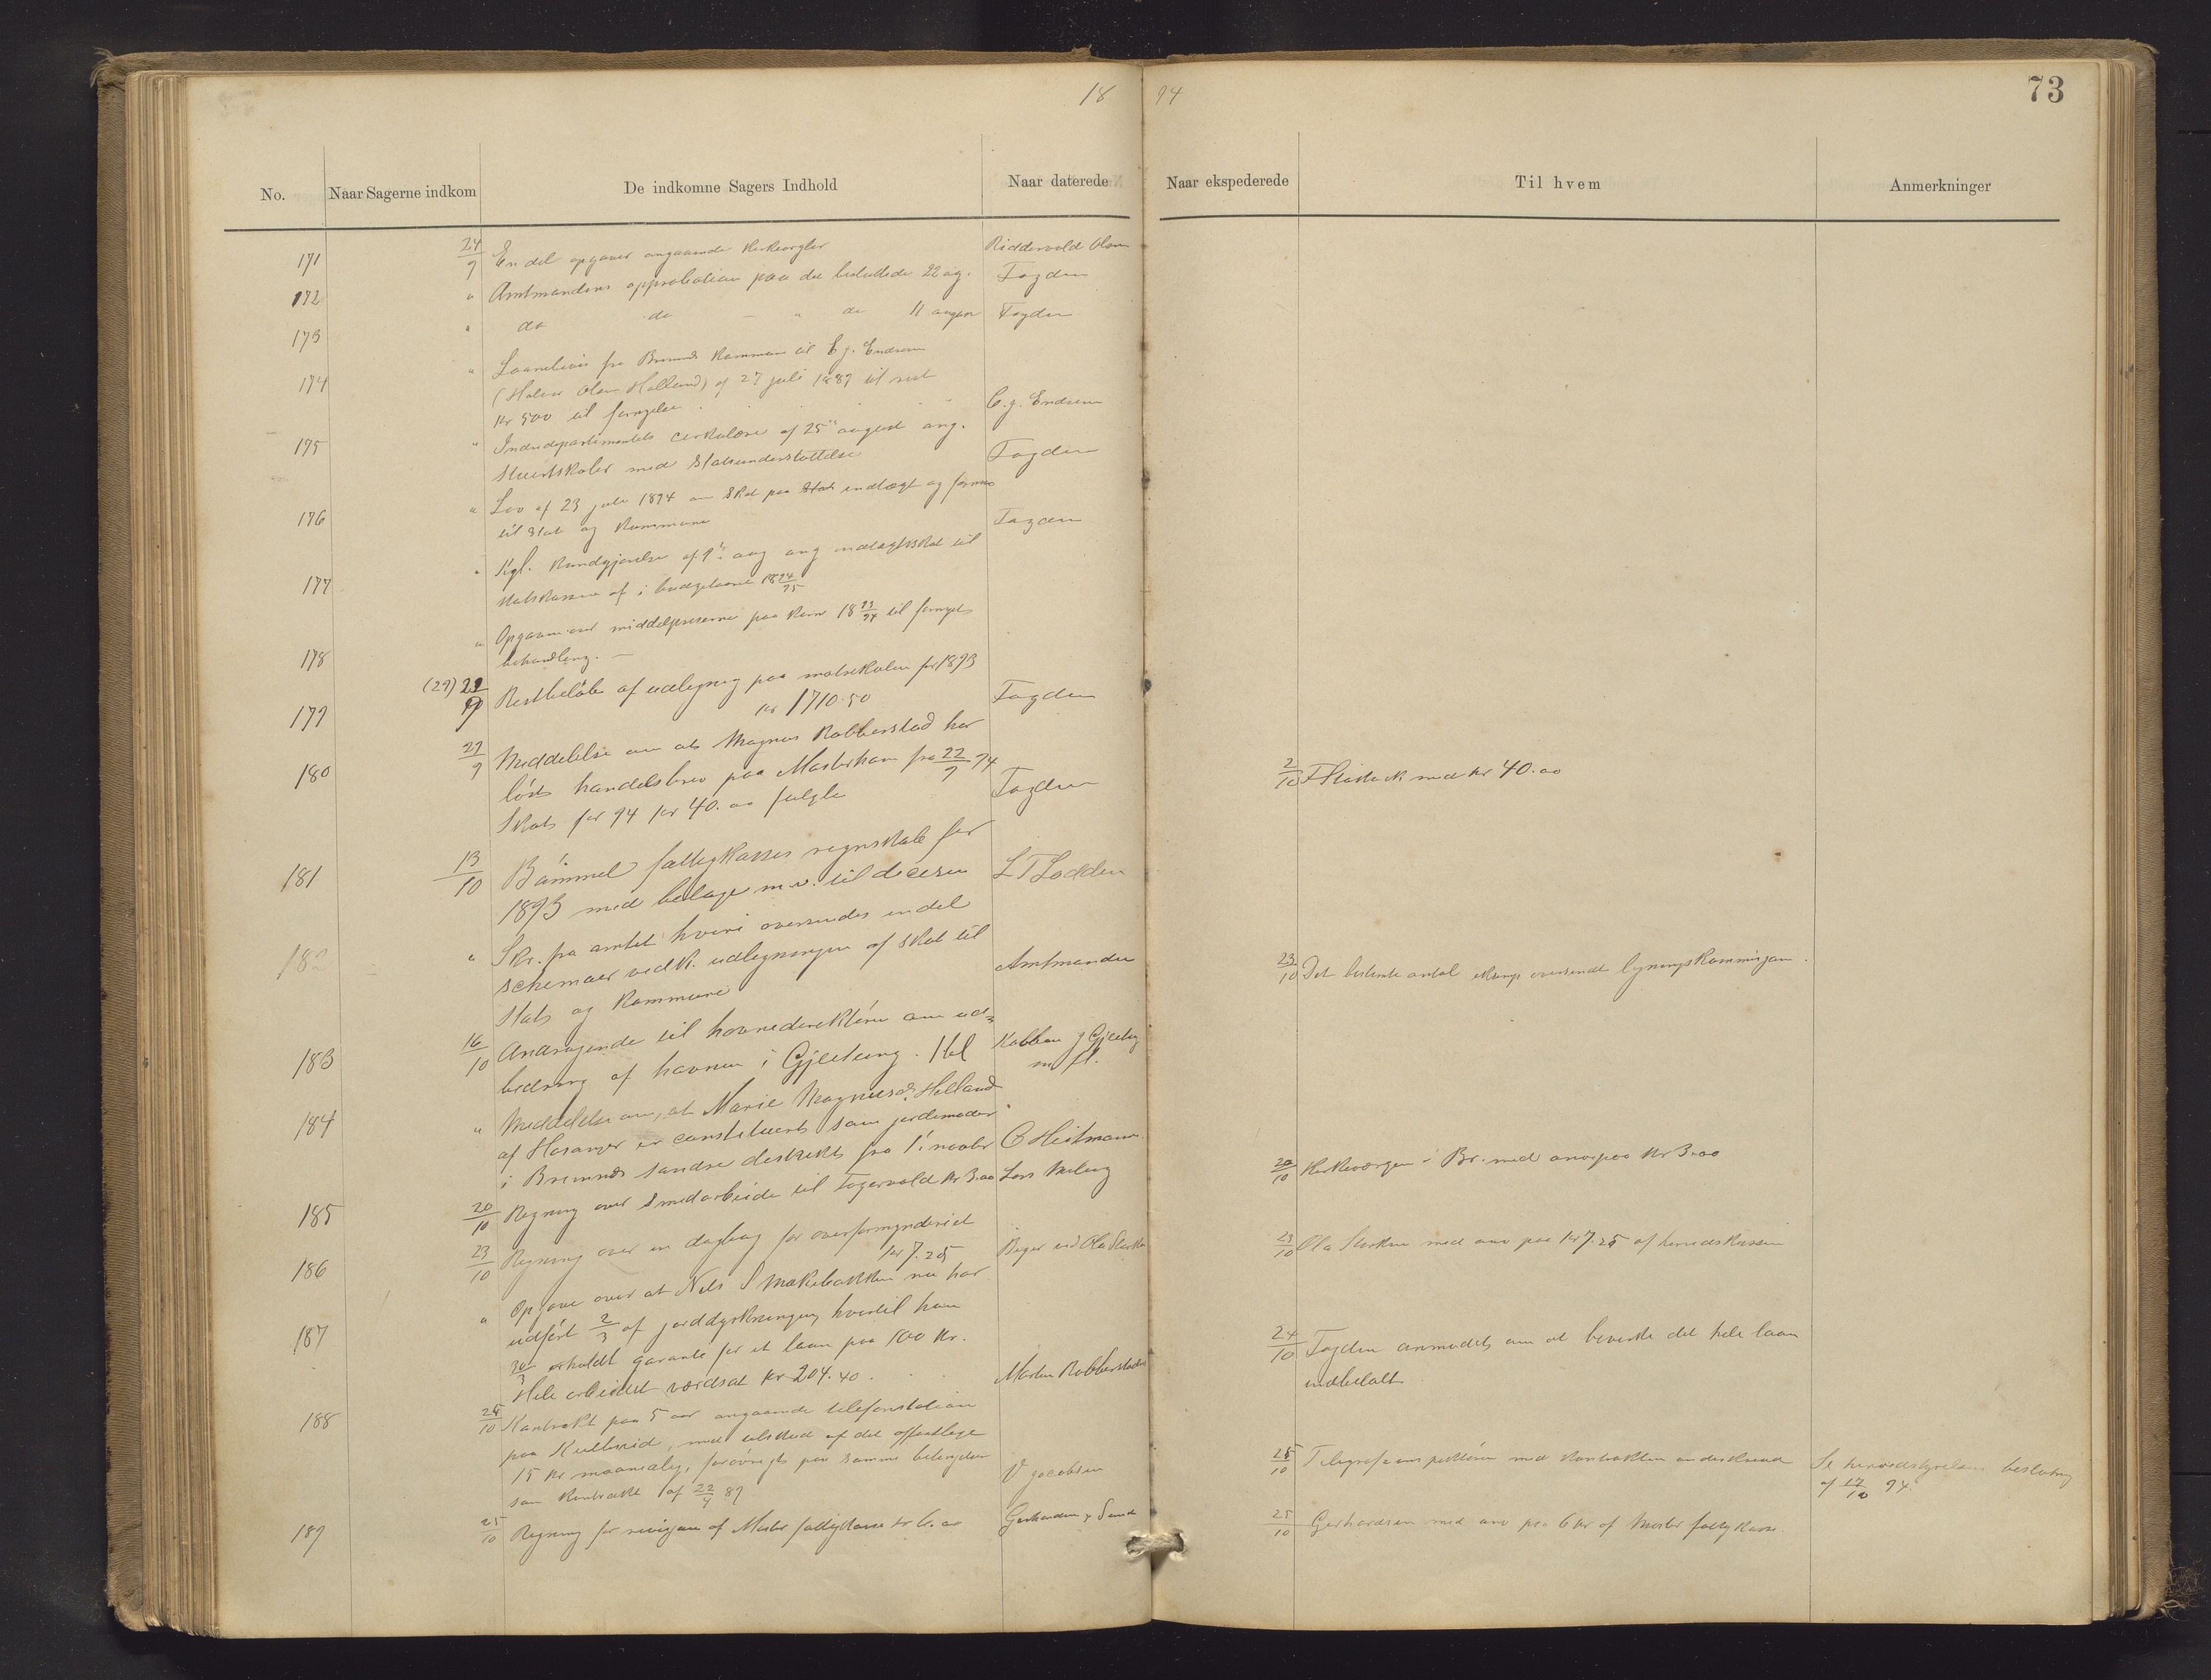 18 94
73
No. Naar Sagerne indkom De indkomne Sagers Indhold Naar daterede Naar ekspederede Til hvem Anmerkninger
171 24/9 En del opgaver angaaende Kirkeorgler Riddervold Olsen
172 " Amtmandens approbation paa det besluttede 22 ag. Fogden
173 " do do - " do 11 august Fogden
174 " Laanebevis fra Bremnes Kommune til C. J. Endresen
(Halvor Olsen Holland) af 27 juli 1889 til rest
Kr 500 til fornyelse . C. J. Endresen
175 " Indredepartementets cirkulære af 25de august ang.
med Statsunderstøttelse Fogden
176 " Lov af 23 juli 1894 om Skat paa indtægt og formue
til Stat og Kommune Fogden
177 " Kgl. Kundgjørelse af 9de aug ang indtægtsskat til
Statskassen af i budgetaaret 1894/95
178 " Opgaver over middelpriserne paa korn 1893/94 til fornyet
behandling. –
179 (29) 29/9 Restbeløb af udlegning paa matrikulen for 1893
kr 1710.50 Fogden
180 29/9 Meddelelse om at Magnus Robberstad har
løst handelsbrev paa Mosterhavn fra 22/9 94
Skat for 94 kr 40.00 følgler Fogden
2/10 med kr 40.00
181 13/10 Bømmel fattigkasses regnskab for
1893 med bilage m.v. til decision L T Lodden
182 " Skr. fra amtet hvori oversendes endel
schemaer vedk. udlegningen af skat til
Stat og Kommune Amtmanden
23/10 Det bestemte antal eksemp oversendt ligningskommisjonen.
183 16/10 Andragende til havnedirektøren om ud-
bedring af havnen i Gjeitung. 1 bl Kobben & Gjeitung
m fl.
184 " Meddelelse om, at Marie Magnusdr Helland
af Hosanger er constitueret som jordemoder
i Bremnes søndre distrikt fra 1. novbr C Heitmann
185 20/10 Regning over Smedarbeide til Fogervold kr 3.00 Lars Meling
20/10 Kirkeværgen i Br. med anv. paa kr 3.00
186 23/10 Regning over en dagbog for overformynderiet
kr 7.25
23/10 Ola med anv paa kr 7.25 af heredskassen
187 " Opgave over at Nels S Mækebakken nu har
udført 2/3 af jorddyrkningen, hvortil han
30/3 erholdt garanti for et laan paa 500 kr.
Hele arbeidet værdsat kr 204.40. Morten Robberstad
24/10 Fogden anmodet om at bevirke det hele laan
indbetalt
188 24/10 Kontrakt paa 5 aar angaaende telefonstation
paa Kulleseid, med tilskud af det offentlige
15 kr maanedlig, forøvrigt paa samme betingelser
som Kontrakt af 22/9 89 V Jacobsen
25/10 Telegrafinspektøren med kontrakten underskrevet Se heredsstyrelsens beslutning
af 17/10 94.
189 25/10 Regning for revisjon af Moster fattigkasse kr 6.00 Gerhardsen
25/10 Gerhardsen med anv paa 6 kr af Moster fattigkasse.